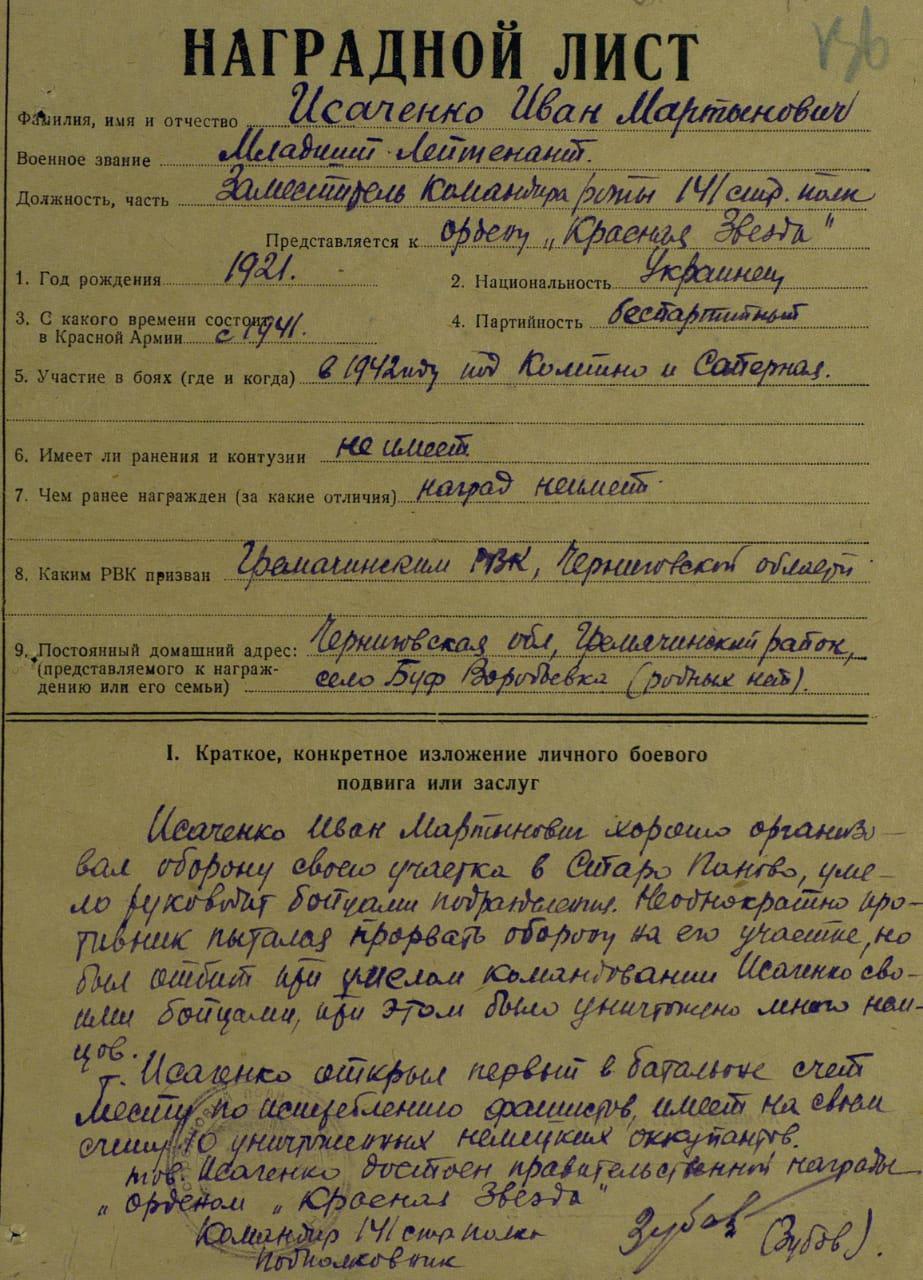 НАГРАДНОЙ ЛИСТ
Фамилия, имя и отчество Исаченко Иван Мартынович
Военное звание Младший Лейтенант.
Должность, часть Заместитель командира роты 141 стр. полк
Представляется к ордену „Красная Звезда"
1. Год рождения 1921. 2. Национальность Украинец
3. С какого времени состоит 4. Партийность беспартийный
в Красной Армии с 1941.
5. Участие в боях (где и когда) в 1942 году под Колпино и Саперная.
6. Имеет ли ранения и контузии не имеет
7. Чем ранее награжден (за какие отличия) наград неимеет
8. Каким РВК призван Гремячинским РВК, Черниговской области
9. Постоянный домашний адрес: Черниговская обл, Гремячинский район,
(представляемого к награж-
дению или его семьи) село Буф Воробьевка (родных нет).
I. Краткое, конкретное изложение личного боевого
подвига или заслуг
Исаченко Иван Мартынович хорошо организо-
вал оборону своего участка в Старо Паново, уме-
ло руководит бойцами подразделения. Неоднократно про-
тивник пытался прорвать оборону на его участке, но
был отбит при умелом командовании Исаченко сво-
ими бойцами, при этом было уничтожено много нем-
цов.
т. Исаченко открыл первый в батальоне счет
мести по истреблению фашистов, имеет на своем
счету 10 уничтоженных немецких оккупантов.
тов. Исаченко достоен правительственной награды
„ орденом „ Красная Звезда"
Командир 141 стр полка
Подполковник Зубов (Зубов).